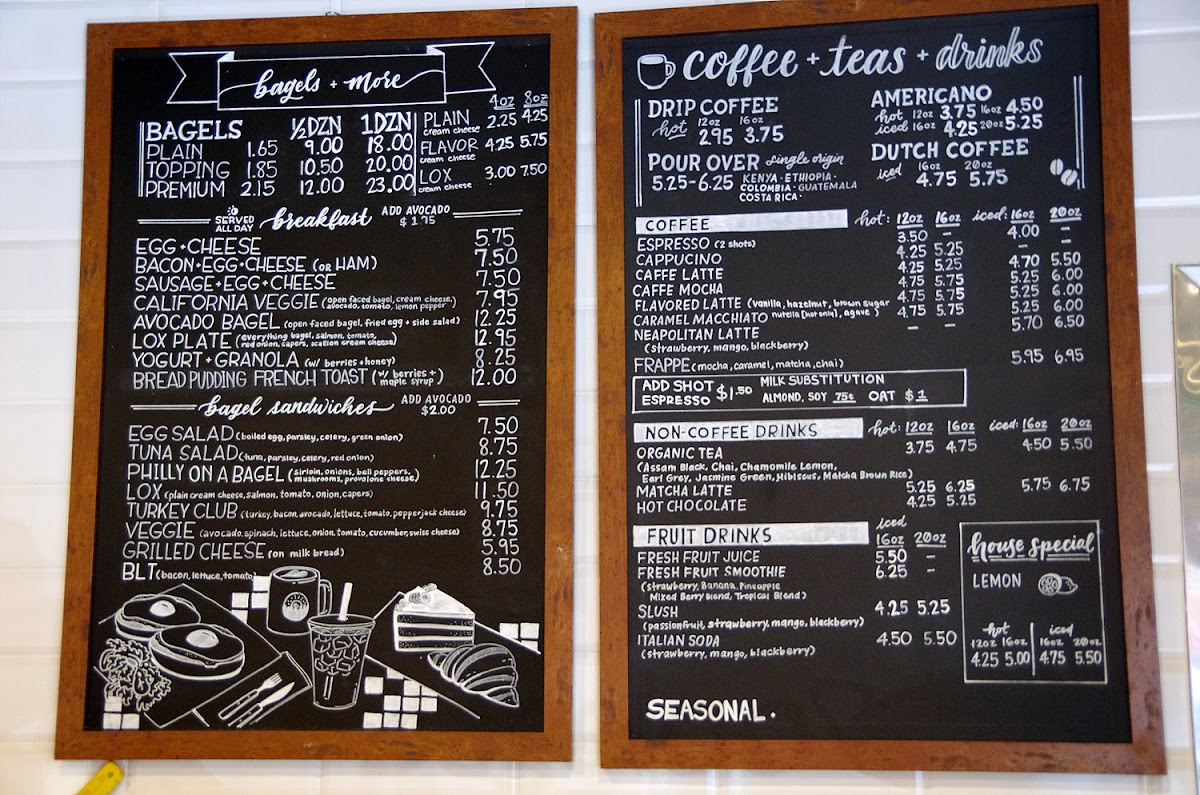 bagels + more
4oz 8oz
BAGELS ½DZN 1DZN
PLAIN 1.65 9.00 18.00
TOPPING 1.85 10.50 20.00
PREMIUM 2.15 12.00 23.00
PLAIN 2.25 4.25
cream cheese
FLAVOR 4.25 5.75
cream cheese
LOX 3.00 7.50
cream cheese
SERVED ALL DAY breakfast ADD AVOCADO $1.75
EGG + CHEESE 5.75
BACON + EGG + CHEESE (OR HAM) 7.50
SAUSAGE + EGG + CHEESE 7.50
CALIFORNIA VEGGIE (open faced bagel, cream cheese, avocado, tomato, lemon pepper 7.95
AVOCADO BAGEL (open faced bagel, fried egg + side salad) 12.25
LOX PLATE (everything bagel, salmon, tomato, red onion, capers, scallion cream cheese) 12.95
YOGURT + GRANOLA (w/ berries + honey) 8.25
BREAD PUDDING FRENCH TOAST (w/ berries + maple syrup) 12.00
bagel sandwiches ADD AVOCADO $2.00
EGG SALAD (boiled egg, parsley, celery, green onion) 7.50
TUNA SALAD (tuna, parsley, celery, red onion) 8.75
PHILLY ON A BAGEL (sirloin, onions, bell peppers, mushrooms, provolone cheese) 12.25
LOX (plain cream cheese, salmon, tomato, onion, capers) 11.50
TURKEY CLUB (turkey, bacon, avocado, lettuce, tomato, pepperjack cheese) 9.75
VEGGIE (avocado, spinach, lettuce, onion, tomato, cucumber, swiss cheese) 8.75
GRILLED CHEESE (on milk bread) 5.95
BLT (bacon, lettuce, tomato) 8.50
coffee + teas + drinks
DRIP COFFEE
12oz 16oz
hot 2.95 3.75
POUR OVER single origin
5.25-6.25 KENYA · ETHIOPIA ·
COLOMBIA · GUATEMALA
COSTA RICA ·
AMERICANO
hot 12oz 3.75 16oz 4.50
iced 16oz 4.25 20oz 5.25
DUTCH COFFEE
16oz 20oz
iced 4.75 5.75
COFFEE hot: 12oz 16oz iced: 16oz 20oz
ESPRESSO (2 shots) 3.50 – 4.00 –
CAPPUCINO 4.25 5.25 – –
CAFFE LATTE 4.25 5.25 4.70 5.50
CAFFE MOCHA 4.75 5.75 5.25 6.00
FLAVORED LATTE (vanilla, hazelnut, brown sugar nutella [hot only], agave) 4.75 5.75 5.25 6.00
CARAMEL MACCHIATO 4.75 5.75 5.25 6.00
NEAPOLITAN LATTE – – 5.70 6.50
(strawberry, mango, blackberry)
FRAPPE (mocha, caramel, matcha, chai) 5.95 6.95
ADD SHOT ESPRESSO $1.50 MILK SUBSTITUTION
ALMOND, SOY 75¢ OAT $1
NON-COFFEE DRINKS hot: 12oz 16oz iced: 16oz 20oz
ORGANIC TEA 3.75 4.75 4.50 5.50
(Assam Black, Chai, Chamomile Lemon,
Earl Grey, Jasmine Green, Hibiscus, Matcha Brown Rice)
MATCHA LATTE 5.25 6.25 5.75 6.75
HOT CHOCOLATE 4.25 5.25
iced
FRUIT DRINKS 16oz 20oz
FRESH FRUIT JUICE 5.50 –
FRESH FRUIT SMOOTHIE 6.25 –
(strawberry, Banana, Pineapple
Mixed Berry blend, Tropical Blend)
SLUSH 4.25 5.25
(passionfruit, strawberry, mango, blackberry)
ITALIAN SODA 4.50 5.50
(strawberry, mango, blackberry)
house special
LEMON
hot iced
12oz 16oz 16oz 20oz
4.25 5.00 4.75 5.50
SEASONAL.